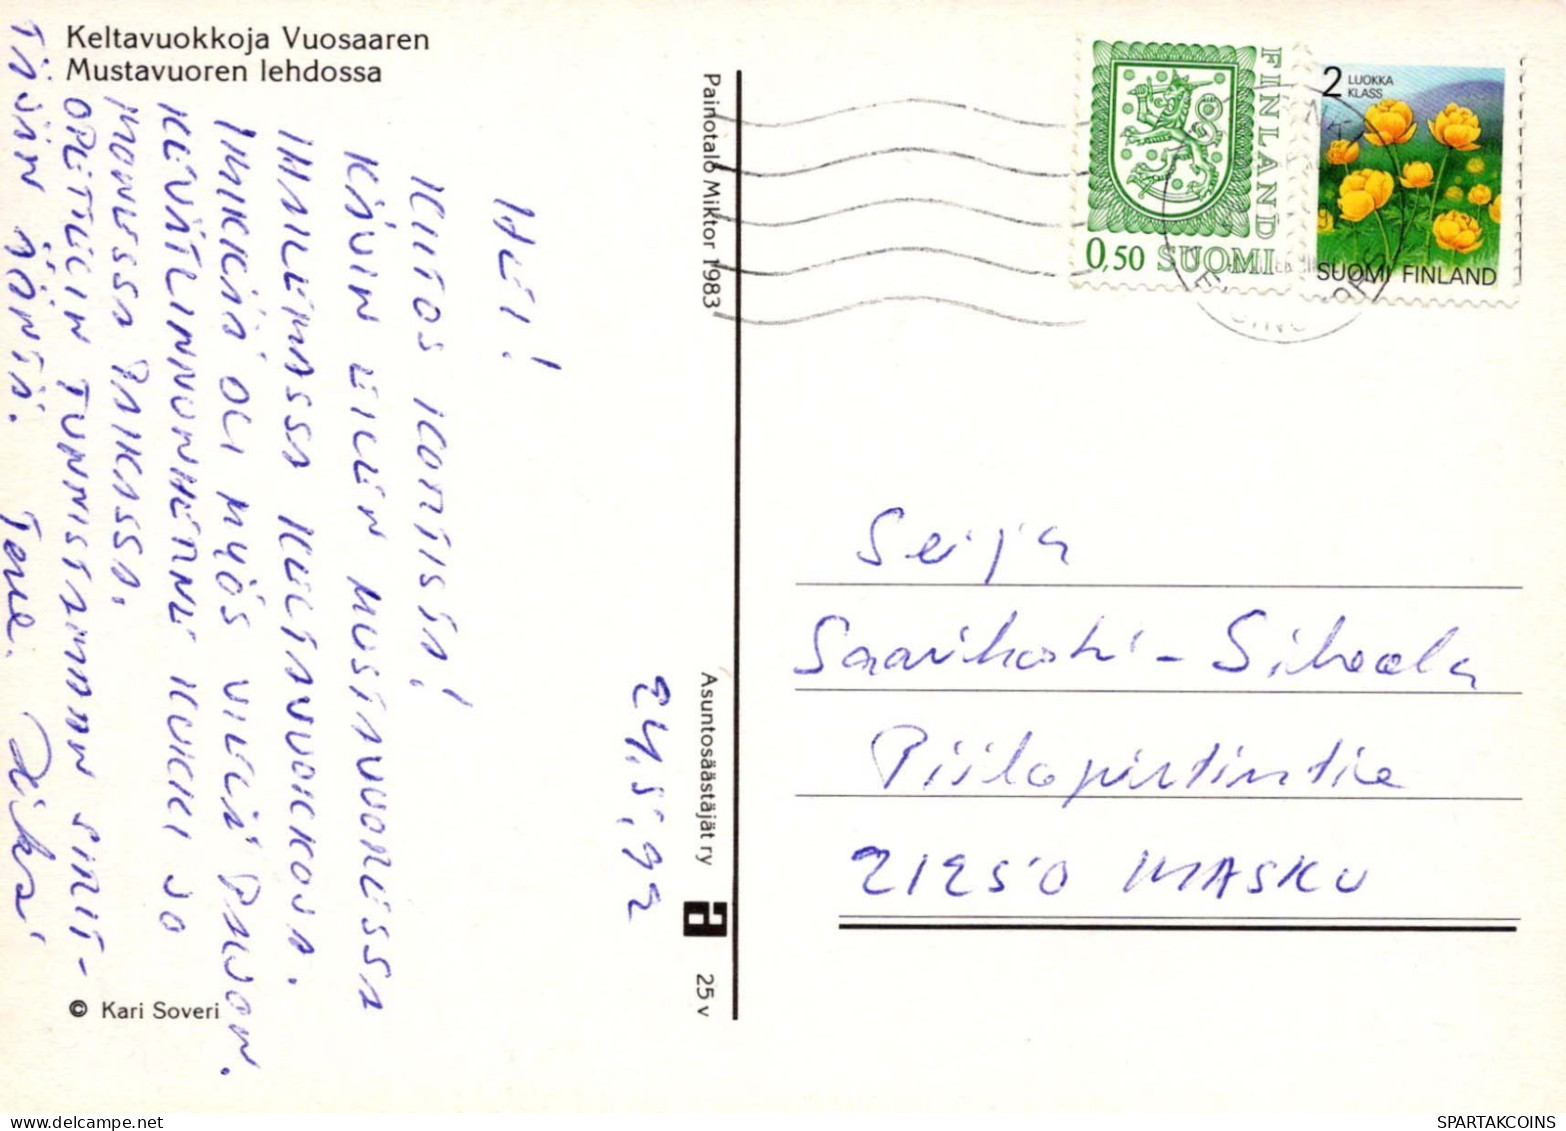 Keltavuokkoja Vuosaaren
Mustavuoren lehdossa
24.5.92
HEI!
KIITOS KORTISTA!
KÄVIN EILEN MUSTAVUORESSA
IHAILEMASSA KELTAVUOKKOJA.
IHKKIÄ OLI MYÖS VIELÄ PALJON.
KEVÄTLINNUNHERNE KUKKI JO
MONESSA PAIKASSA.
OPETTELIN TUNNISTAMAAN SIRIT-
TÄJÄN ÄÄNTÄ. Terv.
© Kari Soveri
Painotalo Miktor 1983
Asuntosäästäjät ry
a
25 v
FINLAND
0,50 SUOMI
2 LUOKKA
KLASS
SUOMI FINLAND
Seija
Saarikoski-Sihvola
Piilopirtintie
21250 MASKU
SPARTAKCOINS